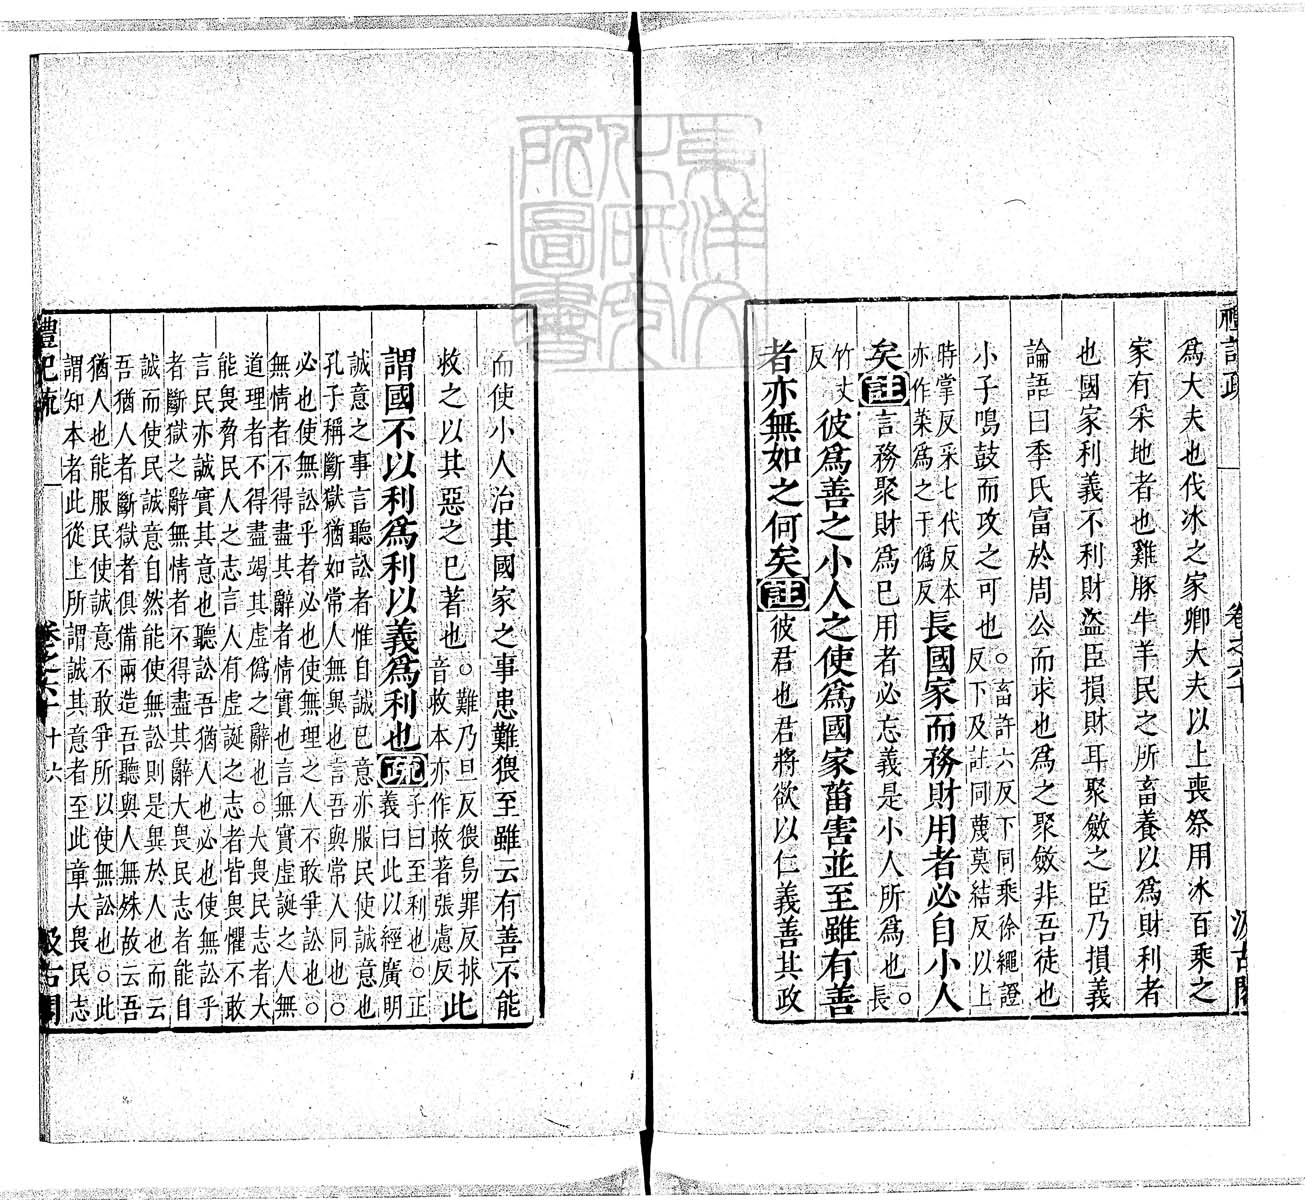 東洋文
化研究
所圖書
禮記疏 卷之六十 汲古閣
爲大夫也伐冰之家卿大夫以上喪祭用冰百乘之
家有采地者也雞豚牛羊民之所畜養以爲財利者
也國家利義不利財盜臣損財耳聚斂之臣乃損義
論語曰季氏富於周公而求也爲之聚斂非吾徒也
小子鳴鼓而攻之可也。畜許六反下同乘徐繩證
反下及註同蔑莫結反以上
時掌反采七代反本
亦作菜爲之于僞反
長國家而務財用者必自小人
矣註言務聚財爲已用者必忘義是小人所爲也。長
竹丈
反
彼爲善之小人之使爲國家菑害並至雖有善
者亦無如之何矣註彼君也君將欲以仁義善其政
而使小人治其國家之事患難猥至雖云有善不能
救之以其惡之已著也。難乃旦反猥烏罪反捄
音救本亦作救著張慮反
此
謂國不以利爲利以義爲利也疏子曰至利也。正
義曰此以經廣明
誠意之事言聽訟者惟自誠已意亦服民使誠意也
孔子稱斷獄猶如常人無異也言吾與常人同也。
必也使無訟乎者必也使無理之人不敢爭訟也。
無情者不得盡其辭者情實也言無實虛誕之人無
道理者不得盡竭其虛僞之辭也。大畏民志者大
能畏脅民人之志言人有虛誕之志者皆畏懼不敢
言民亦誠實其意也聽訟吾猶人也必也使無訟乎
者斷獄之辭無情者不得盡其辭大畏民志者能自
誠而使民誠意自然能使無訟則是異於人也而云
吾猶人者斷獄者俱備兩造吾聽與人無殊故云吾
猶人也能服民使誠意不敢爭所以使無訟也。此
謂知本者此從上所謂誠其意者至此章大畏民志
禮記疏 卷之六十 十六 汲古閣